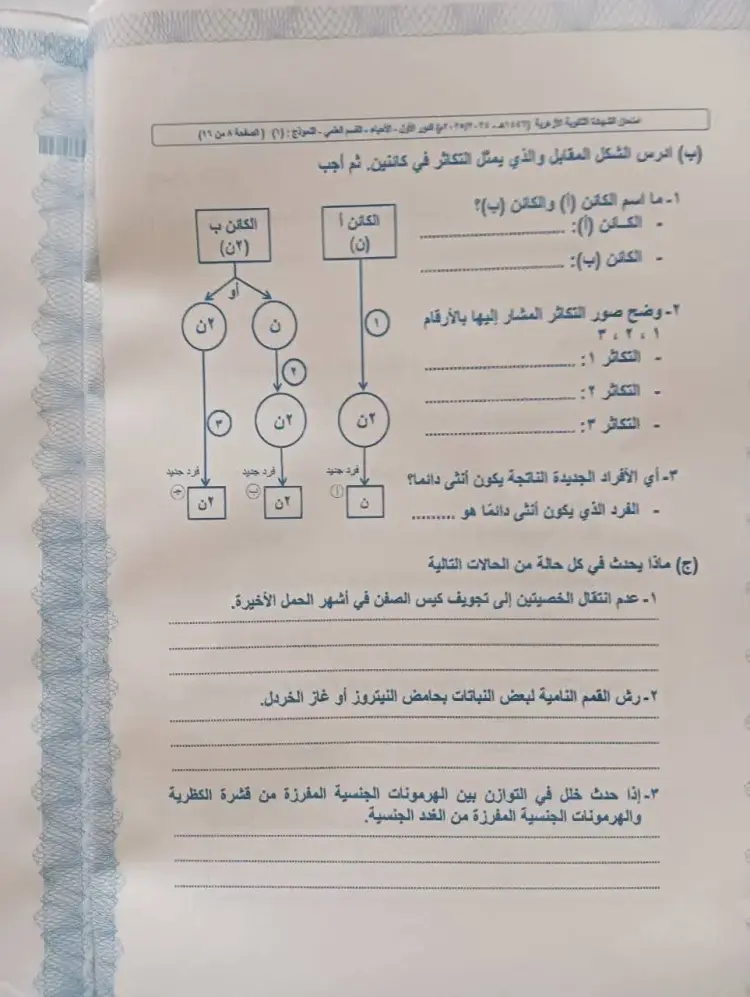 امتحان الشهادة الثانوية الأزهرية (١٤٤٦هـ - ٢٠٢٤/٢٠٢٥م) الدور الأول - الأحياء - القسم العلمي - النموذج: (١) (الصفحة ٨ من ١٦)
(ب) ادرس الشكل المقابل والذي يمثل التكاثر في كائنين. ثم أجب
١- ما اسم الكائن (أ) والكائن (ب)؟
- الكائن (أ):
- الكائن (ب):
٢- وضح صور التكاثر المشار إليها بالأرقام
١ ، ٢ ، ٣
- التكاثر ١:
- التكاثر ٢:
- التكاثر ٣:
٣- أي الأفراد الجديدة الناتجة يكون أنثى دائما؟
- الفرد الذي يكون أنثى دائمًا هو .........
الكائن أ
(ن)
١
٢ن
فرد جديد
أ
ن
الكائن ب
(٢ن)
أو
ن
٢ن
٢
٣
٢ن
فرد جديد
ب
٢ن
فرد جديد
جـ
٢ن
(ج) ماذا يحدث في كل حالة من الحالات التالية
١- عدم انتقال الخصيتين إلى تجويف كيس الصفن في أشهر الحمل الأخيرة.
٢- رش القمم النامية لبعض النباتات بحامض النيتروز أو غاز الخردل.
٣- إذا حدث خلل في التوازن بين الهرمونات الجنسية المفرزة من قشرة الكظرية
والهرمونات الجنسية المفرزة من الغدد الجنسية.